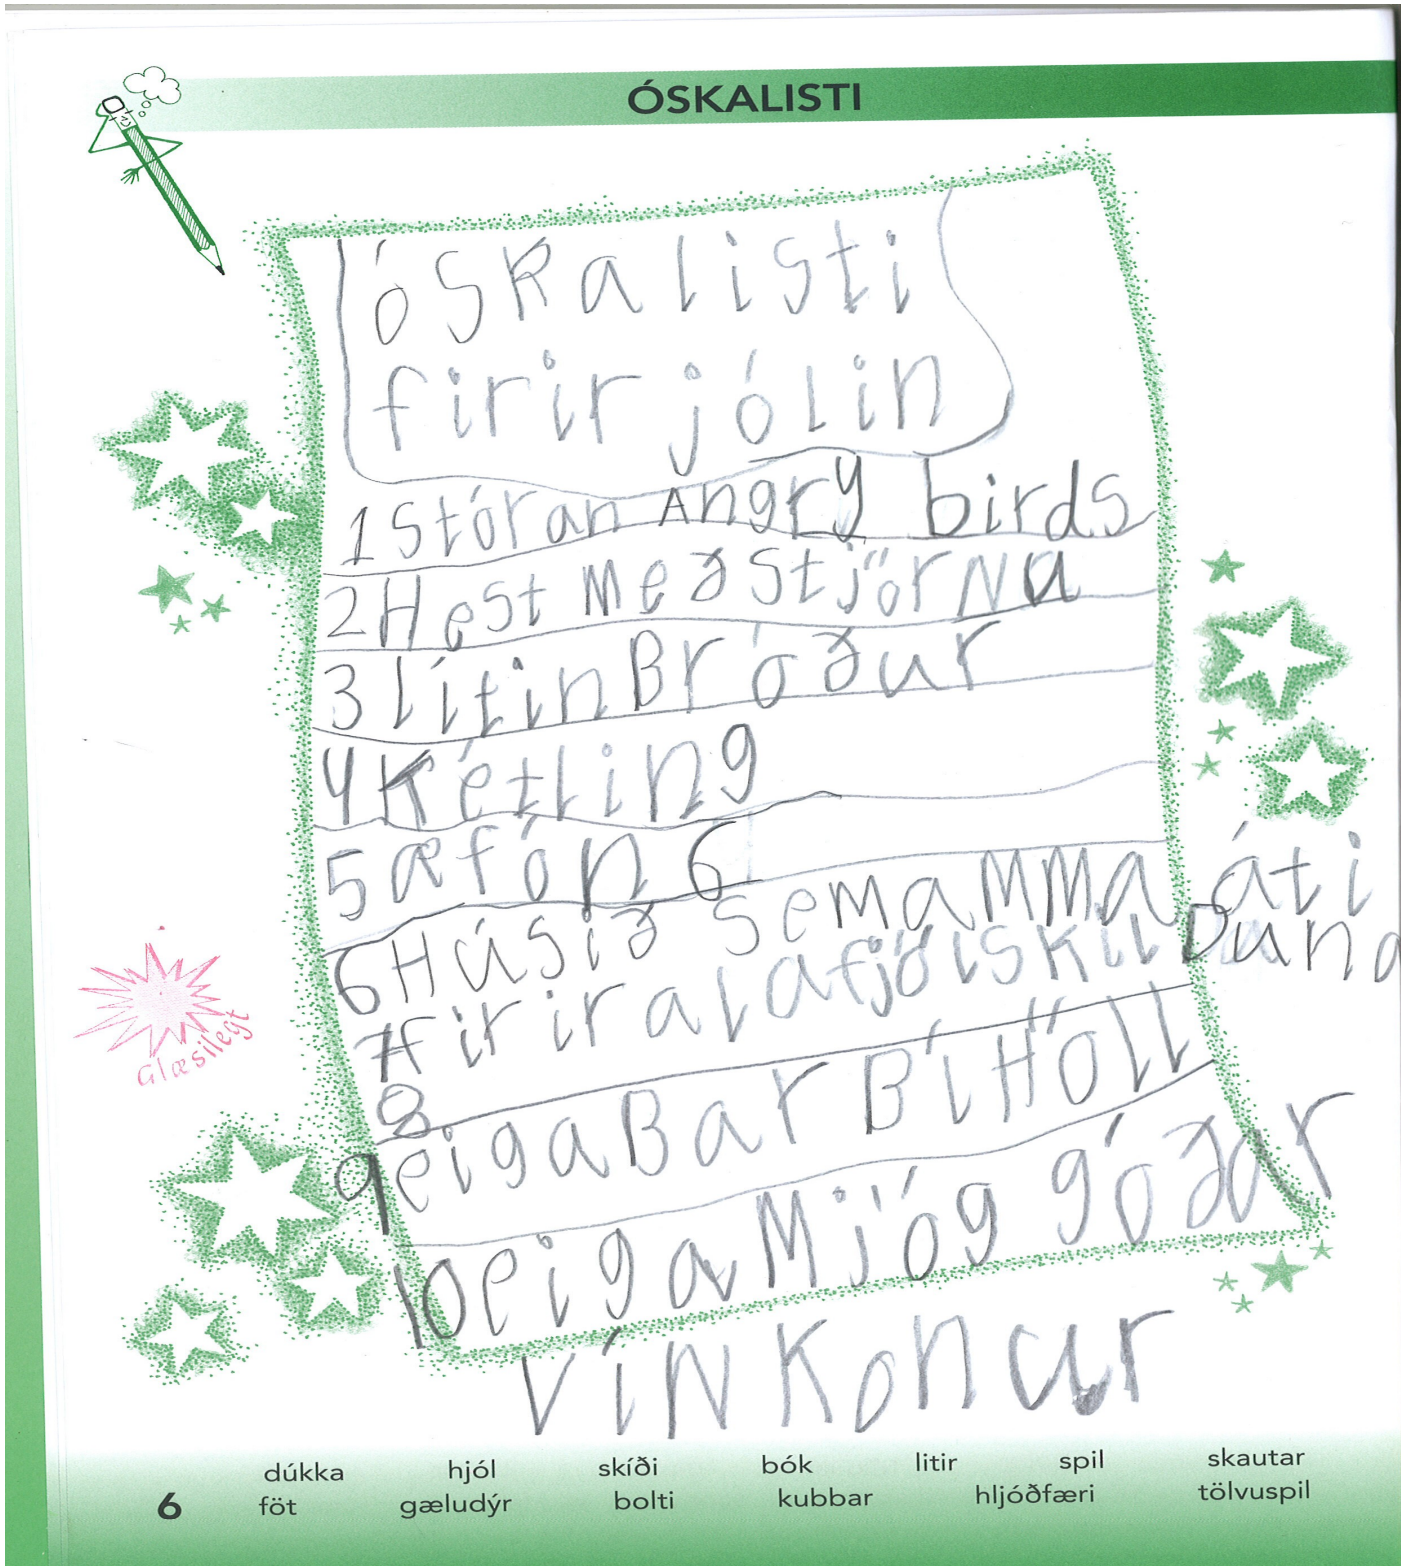 ÓSKALISTI
óskalisti
firir jólin
1 Stóran Angry birds
2 Hest með Stjörnu
3 lítin Bróður
4 Kétling
5 æfón 6
6 Húsið sem amma áti
7 firir alafjölskil Duna
8
9 eiga Bar Bí Höll
10 eiga Mjög góðar
vínkonur
Glæsilegt
dúkka hjól skíði bók litir spil skautar
6 föt gæludýr bolti kubbar hljóðfæri tölvuspil